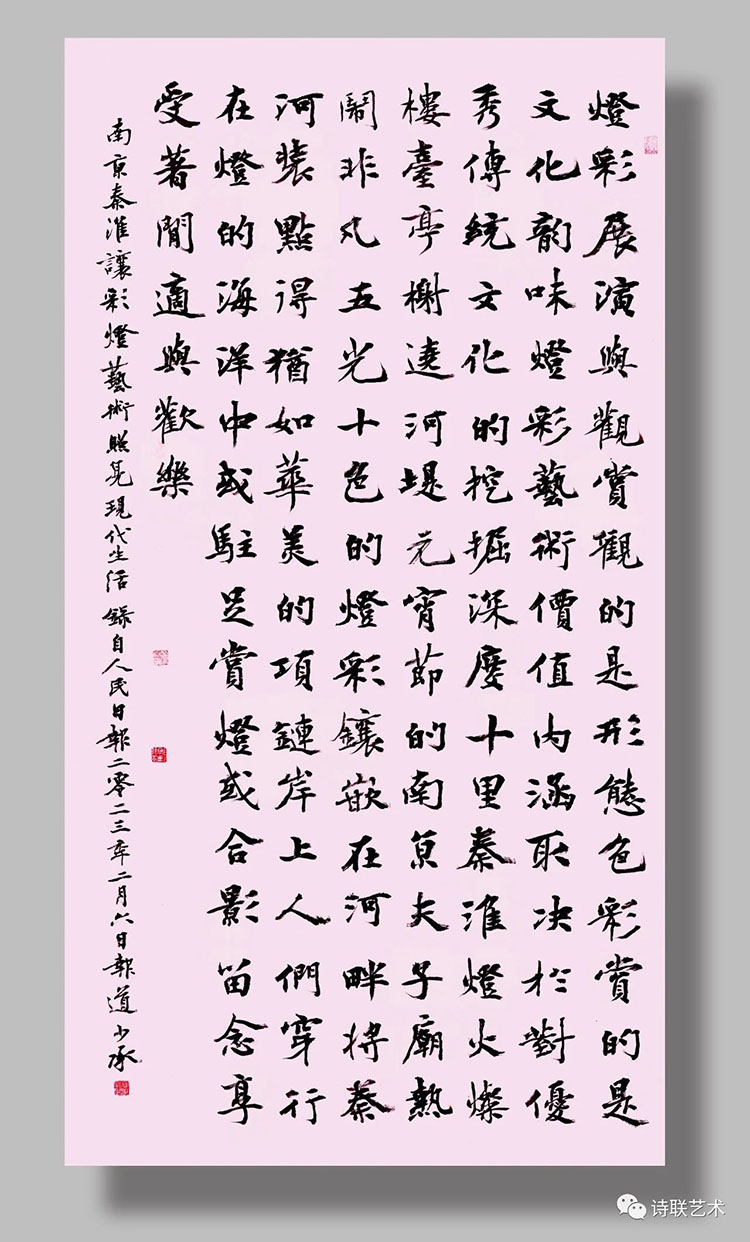 燈彩展演與觀賞觀的是形態色彩賞的是
文化韵味燈彩藝術價值內涵取决於對優
秀傳統文化的挖掘深度十里秦淮燈火燦
樓臺亭榭遶河堤元宵節的南京夫子廟熱
鬧非凡五光十色的燈彩鑲嵌在河畔將秦
河裝點得猶如華美的項鏈岸上人們穿行
在燈的海洋中或駐足賞燈或合影留念享
受著閒適與歡樂
南京秦淮讓彩燈藝術照亮現代生活 錄自人民日報二零二三年二月六日報道 少承
诗联艺术